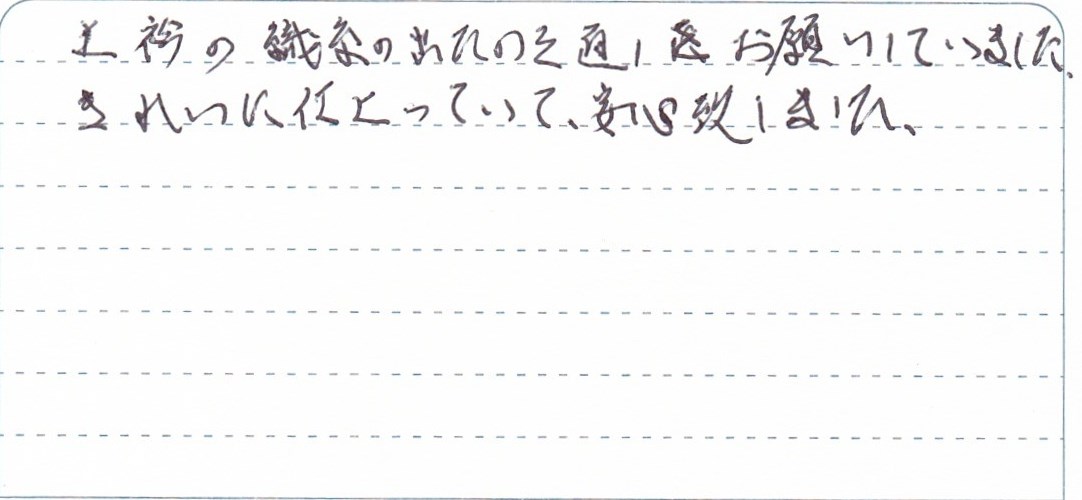 上衿の織糸の出たのを通し お願いしていました。
きれいに仕上っていて、安心致しました。